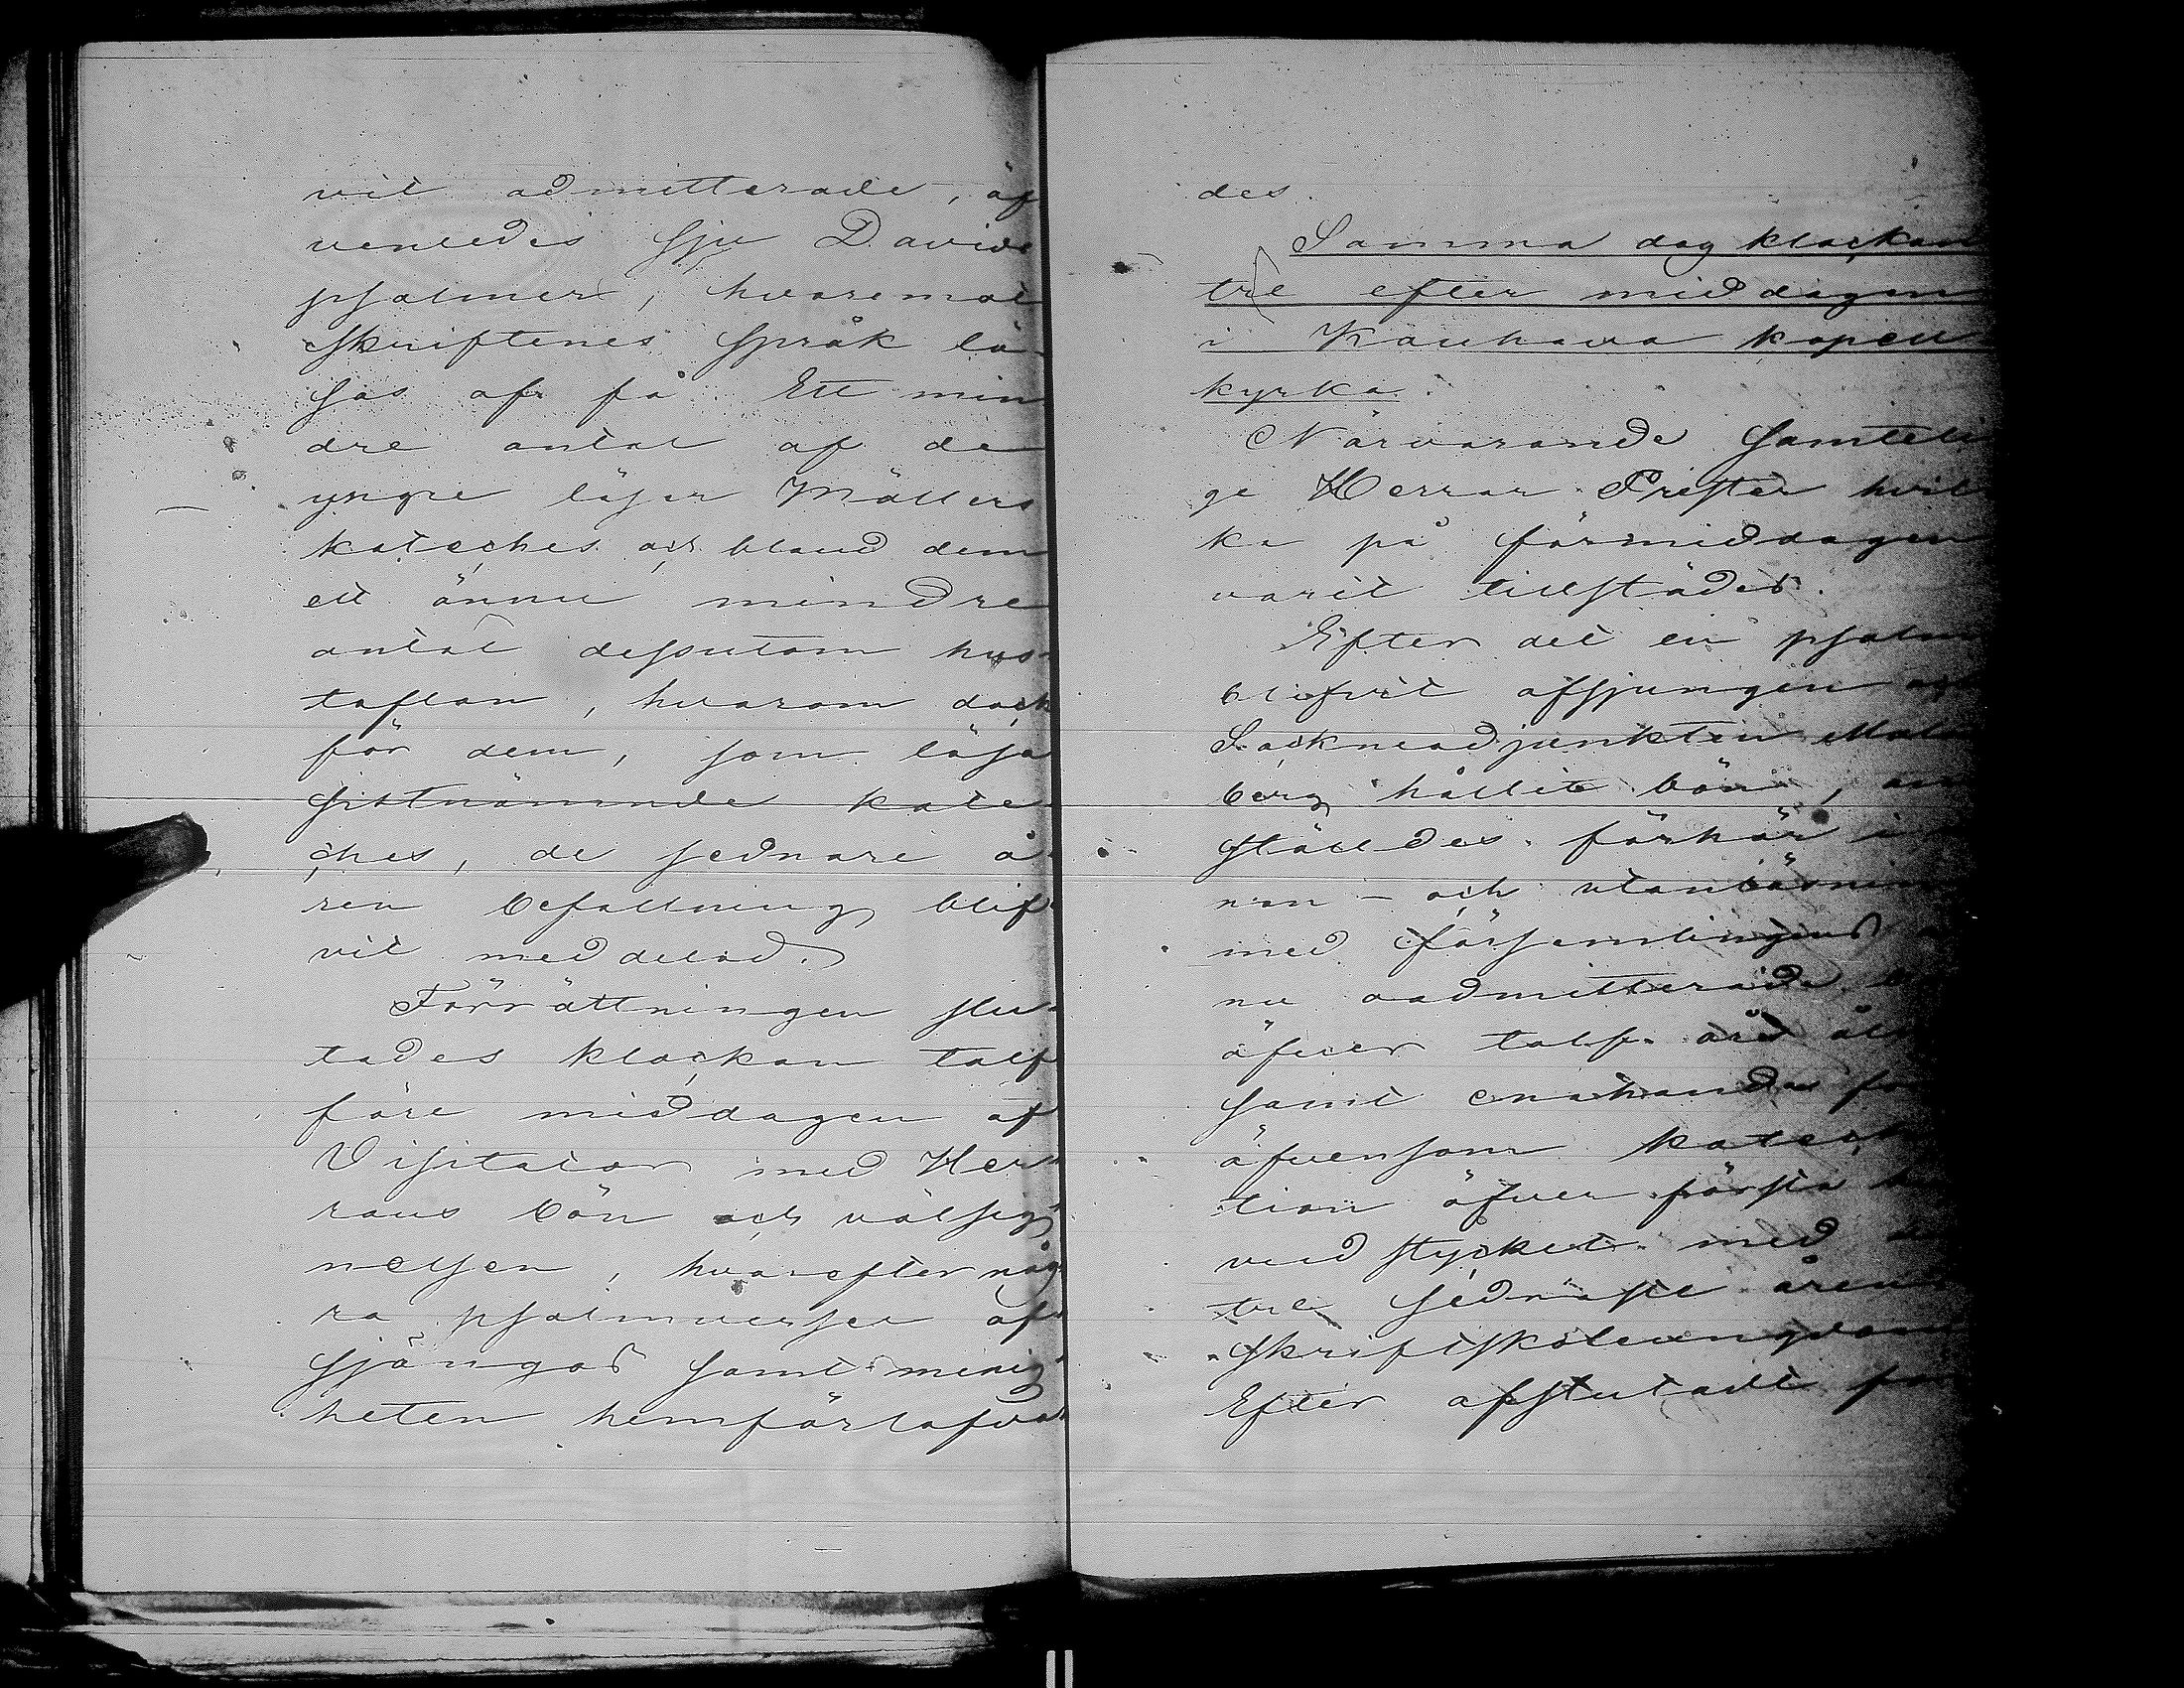 vit admitterade, äf
venledes sju Davids
psalmer, hvaremot
skriftenes språk lä-
sas af få. Ett min
dre antal af de
yngre läser Möllers
kateches och bland dem
ett ännu mindre
antal dessutom hus-
taflan, hvarom dock
för dem, som läsa
sistnämnde kate-
ches, de sednare å-
ren befallning blif-
vit meddelad.
Förrättningen slu-
tades klockan tolf
före middagen af
Visitator med Her-
rans bön och välsig-
nelsen, hvarefter någ-
ra psalmverser af-
sjöngos samt menig-
heten hemförlofva-
des.
Samma dag klockan
tre efter middagen
i Kauhava kapell
kyrka.
Närvarande samteli
ge Herrar Prester hvil
ka på förmiddagen
varit tillstädes.
Efter det en psalm
blifvit afsjungen och
Sockneadjunkten Malm
berg hållit bön, an
ställdes förhör i
nan- och utanläsning
med församlingens
nu oadmitterade
öfver tolf år
samt enahanda
äfvensom katech
tion öfver första
vud stycket med
tre sednaste årens
skriftskoleungdom
Efter afslutadt